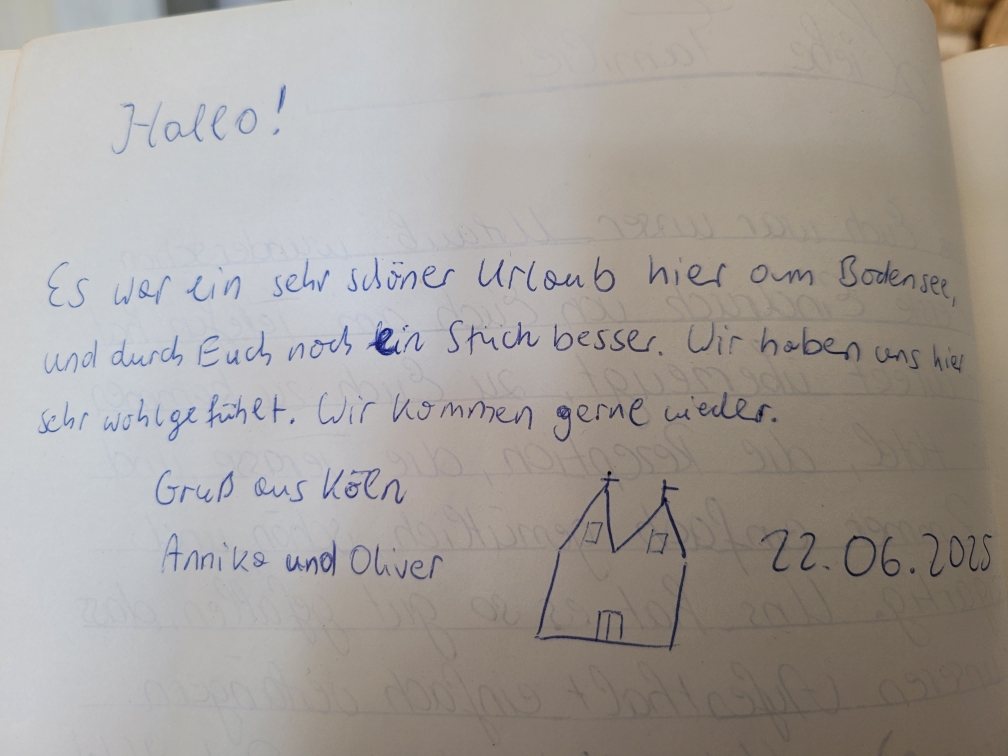 Hallo!
Es war ein sehr schöner Urlaub hier am Bodensee,
und durch Euch noch ein Stück besser. Wir haben uns hier
sehr wohlgefühlt. Wir kommen gerne wieder.
Gruß aus Köln
Annika und Oliver
22.06.2025